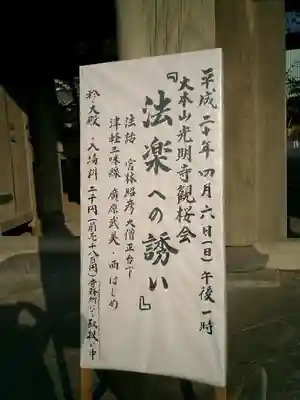 平成二十年四月六日(日)午後一時
大本山光明寺観桜会
『法楽への誘い』
法話 宮林昭彦大僧正台下
津軽三味線 廣原武美・面はじめ
於・大殿 ・入場料 二千円(前売千八百円)寺務所にて取扱い中